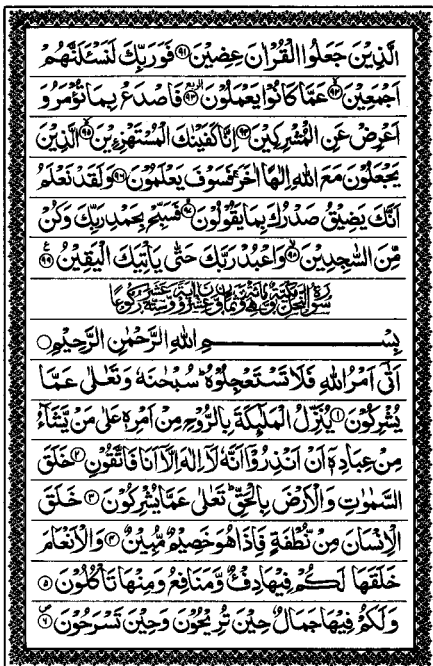 الَّذِيْنَ جَعَلُوا الْقُرْاٰنَ عِضِيْنَ ﴿۹۱﴾ فَوَرَبِّكَ لَنَسْـَٔلَنَّهُمْ
اَجْمَعِيْنَ ﴿۹۲﴾ عَمَّا كَانُوْا يَعْمَلُوْنَ ﴿۹۳﴾ فَاصْدَعْ بِمَا تُؤْمَرُ وَ
اَعْرِضْ عَنِ الْمُشْرِكِيْنَ ﴿۹۴﴾ اِنَّا كَفَيْنٰكَ الْمُسْتَهْزِءِيْنَ ﴿۹۵﴾ الَّذِيْنَ
يَجْعَلُوْنَ مَعَ اللّٰهِ اِلٰهًا اٰخَرَ ۚ فَسَوْفَ يَعْلَمُوْنَ ﴿۹۶﴾ وَلَقَدْ نَعْلَمُ
اَنَّكَ يَضِيْقُ صَدْرُكَ بِمَا يَقُوْلُوْنَ ﴿۹۷﴾ فَسَبِّحْ بِحَمْدِ رَبِّكَ وَكُنْ
مِّنَ السّٰجِدِيْنَ ﴿۹۸﴾ وَاعْبُدْ رَبَّكَ حَتّٰى يَاْتِيَكَ الْيَقِيْنُ ﴿۹۹﴾
بِسْمِ اللّٰهِ الرَّحْمٰنِ الرَّحِيْمِ ○
اَتٰۤى اَمْرُ اللّٰهِ فَلَا تَسْتَعْجِلُوْهُ ؕ سُبْحٰنَهٗ وَتَعٰلٰى عَمَّا
يُشْرِكُوْنَ ﴿۱﴾ يُنَزِّلُ الْمَلٰٓئِكَةَ بِالرُّوْحِ مِنْ اَمْرِهٖ عَلٰى مَنْ يَّشَآءُ
مِنْ عِبَادِهٖۤ اَنْ اَنْذِرُوْۤا اَنَّهٗ لَاۤ اِلٰهَ اِلَّاۤ اَنَا فَاتَّقُوْنِ ﴿۲﴾ خَلَقَ
السَّمٰوٰتِ وَالْاَرْضَ بِالْحَقِّ ؕ تَعٰلٰى عَمَّا يُشْرِكُوْنَ ﴿۳﴾ خَلَقَ
الْاِنْسَانَ مِنْ نُّطْفَةٍ فَاِذَا هُوَ خَصِيْمٌ مُّبِيْنٌ ﴿۴﴾ وَالْاَنْعَامَ
خَلَقَهَا ۚ لَكُمْ فِيْهَا دِفْءٌ وَّمَنَافِعُ وَمِنْهَا تَاْكُلُوْنَ ﴿۵﴾
وَلَكُمْ فِيْهَا جَمَالٌ حِيْنَ تُرِيْحُوْنَ وَحِيْنَ تَسْرَحُوْنَ ﴿۶﴾